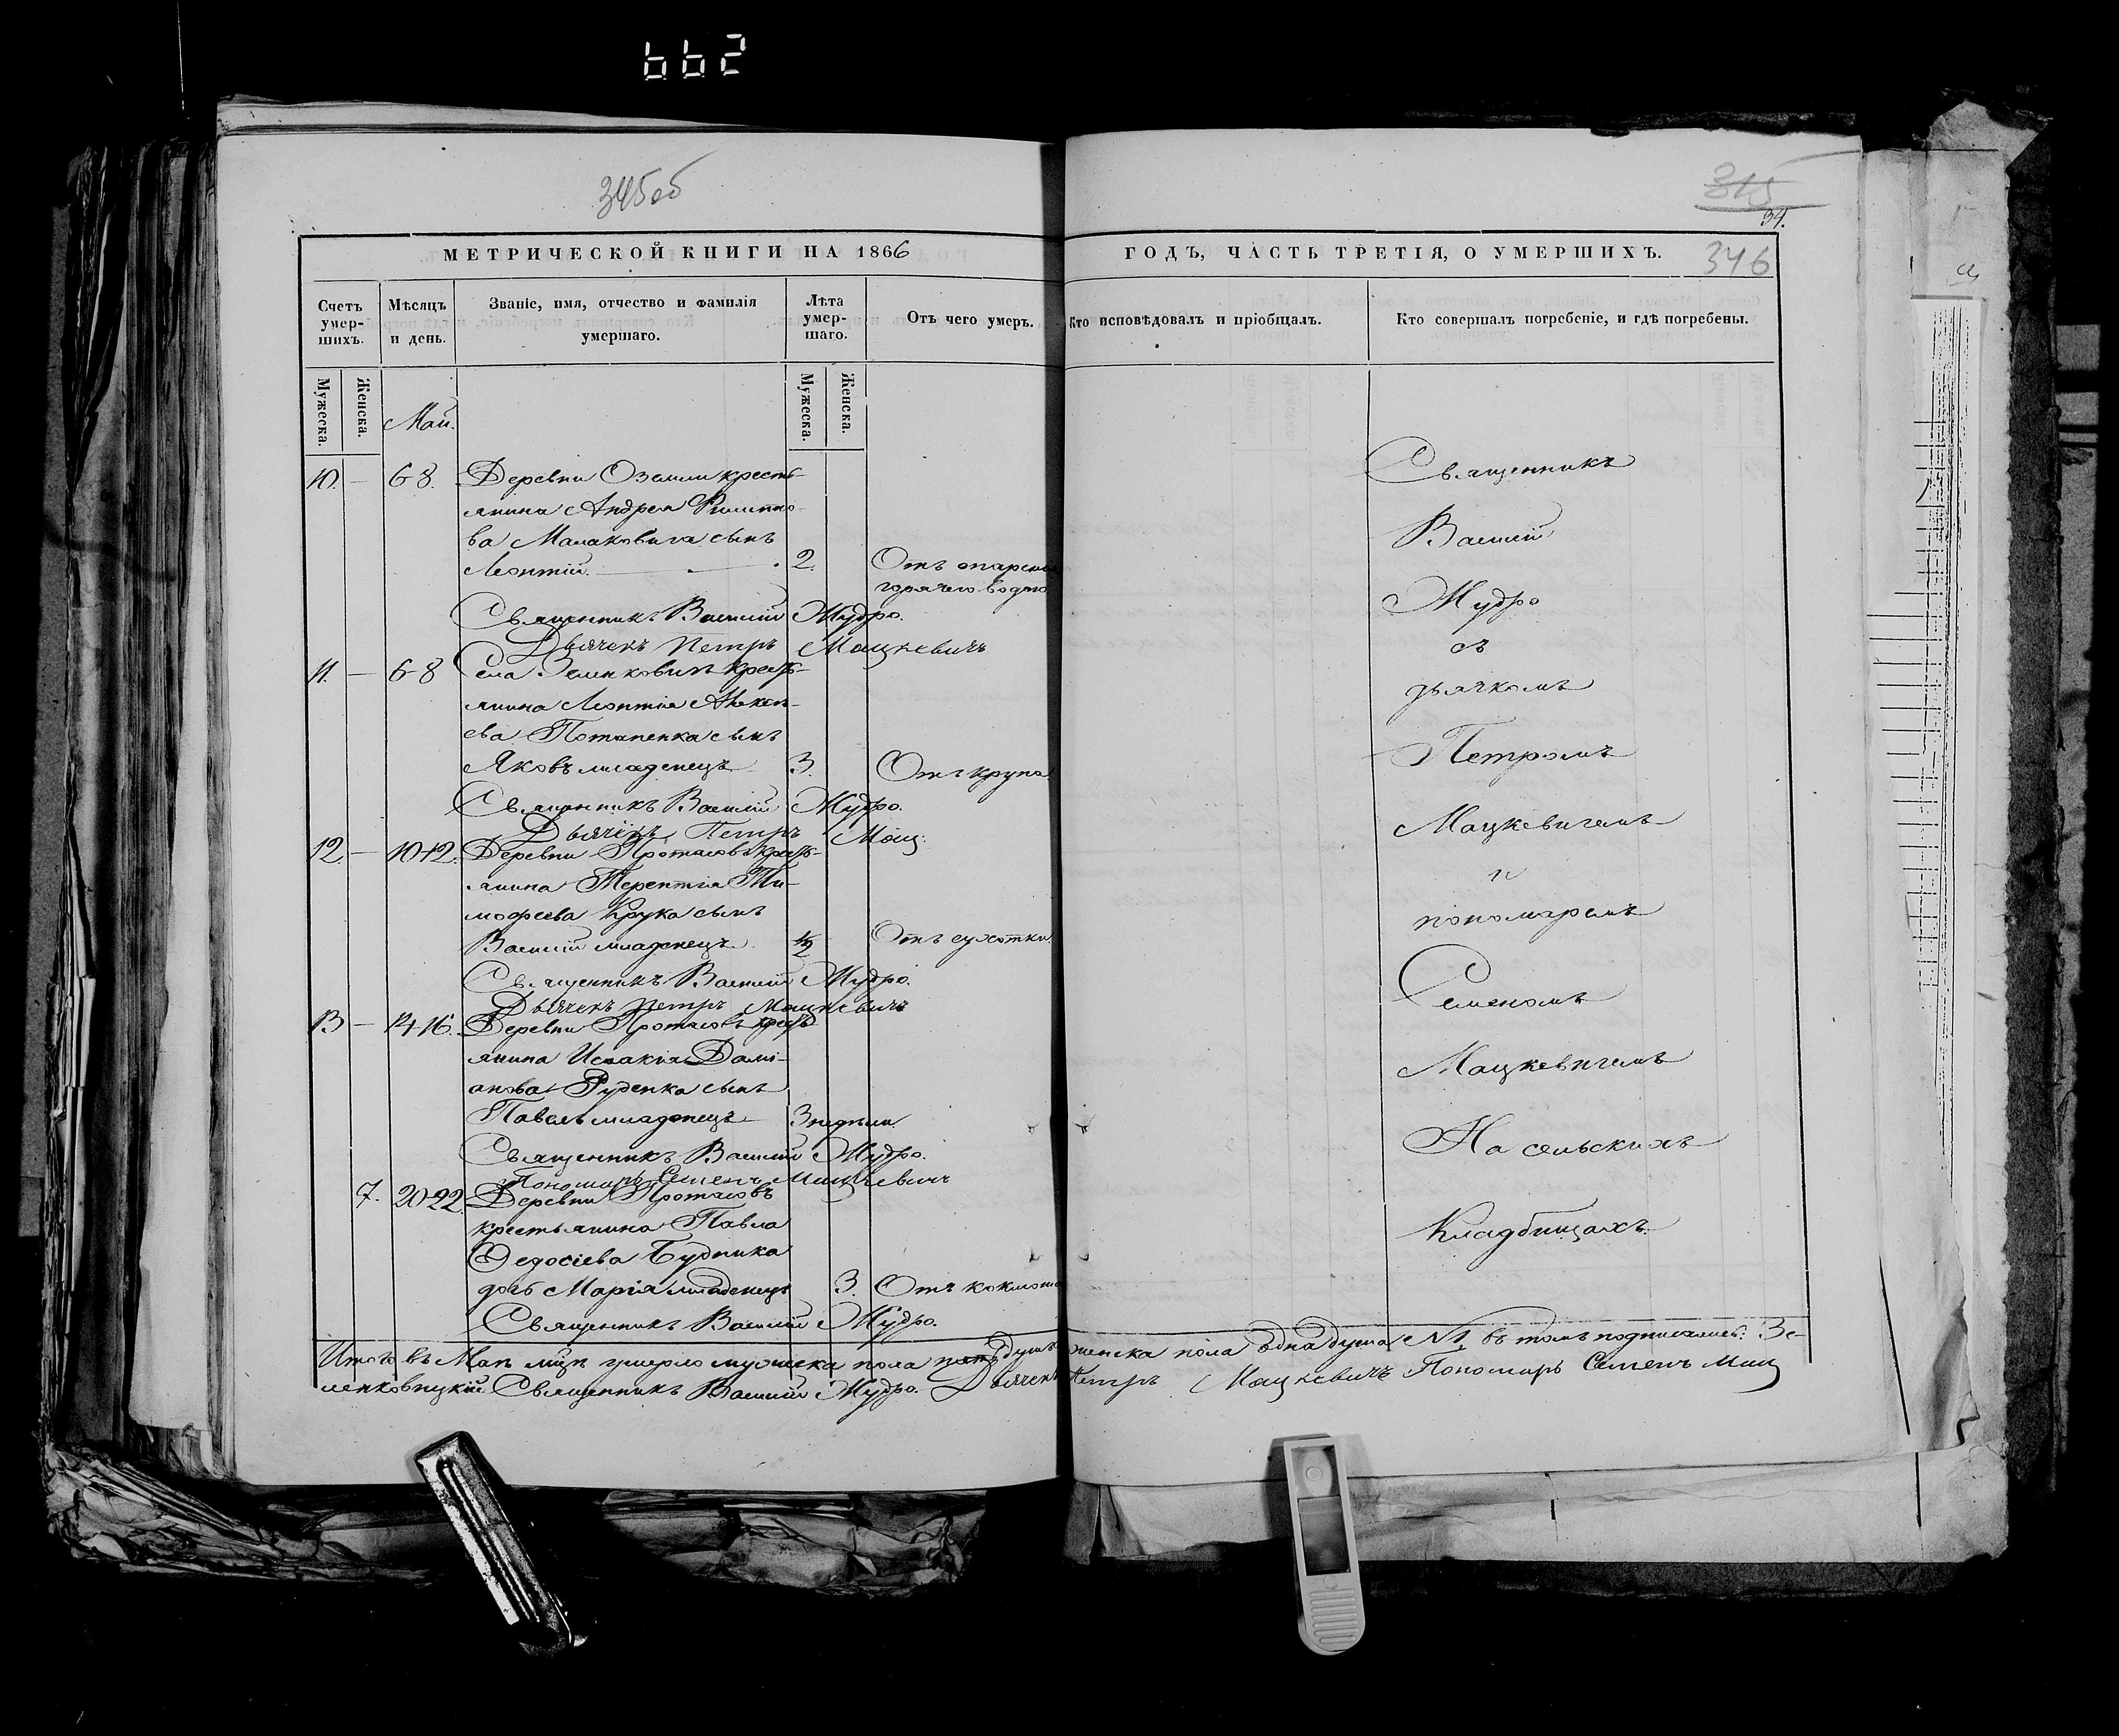 662
345об
345
34.
МЕТРИЧЕСКОЙ КНИГИ НА 1866 ГОДЪ, ЧАСТЬ ТРЕТІЯ, О УМЕРШИХЪ.
346
Счетъ умер-шихъ.
Мѣсяцъ и день.
Званіе, имя, отчество и фамилія умершаго.
Лѣта умер-шаго.
Отъ чего умеръ.
Кто исповѣдовалъ и пріобщалъ.
Кто совершалъ погребеніе, и гдѣ погребены.
Мужеска.
Женска.
Май.
Мужеска.
Женска.
10. — 6-8. Деревни кресть-
янина Андрея Филипо-
ва сынъ
Леонтій. 2. Отъ
горячею водою
Священникъ Василій Мудро.
Дьячекъ Петръ Мацкевичъ
11. — 6-8 Села крестъ-
янина Леонтія Алексѣ-
ева Потапенка сынъ
Яковъ младенецъ 3. Отъ крупа
Священникъ Василій Мудро.
Дьячекъ Петръ Мац.
12. — 10-12. Деревни Протасовъ крестъ-
янина Терентія Ти-
мофеева Крука сынъ
Василій младенецъ 1/2 Отъ сухотки.
Священникъ Василій Мудро.
Дьячекъ Петръ Мацкевичъ
13 — 14-16. Деревни Протасовъ крестъ-
янина Исаакія Дамі-
анова Руденка сынъ
Павелъ младенецъ 3 недѣли
Священникъ Василій Мудро.
Пономарь Семенъ Мацкевичъ
7. 20-22. Деревни Протасовъ
крестьянина Павла
Ѳедосіева Будника
дочь Марія младенецъ 3. Отъ коклюша
Священникъ Василій Мудро.
Священникъ
Василій
Мудро
съ
дьячкомъ
Петромъ
Мацкевичемъ
и
пономаремъ
Семеномъ
Мацкевичемъ
На сельскихъ
Кладбищахъ.
Итого въ Маѣ мцѣ умерло мужеска пола душъ женска пола одна душа №1, въ томъ подписались: Зе-
ленковицкій Священникъ Василій Мудро. Дьячекъ Петръ Мацкевичъ Пономарь Семенъ Мац